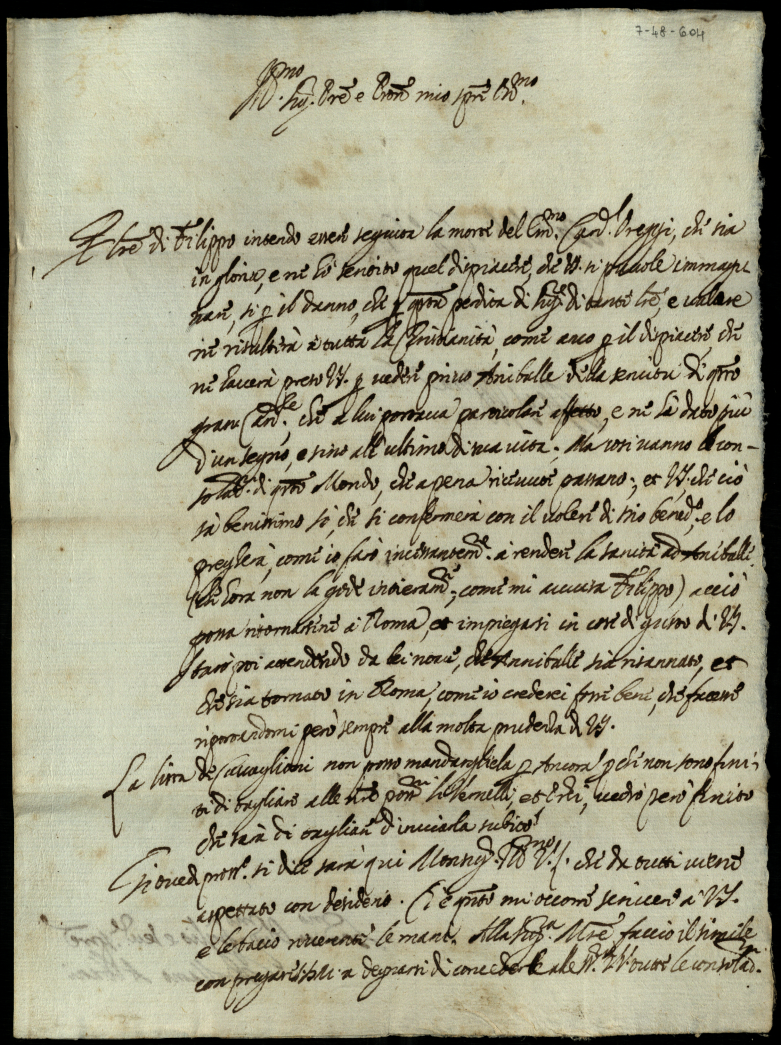 7-48-604
Ill.mo
Sig. Pre e Prone mio sempre Oss.mo
P lre di Filippo intendo essere seguita la morte del Em.mo Card.l Treggi, che sia
in gloria, e ne hò sentito quel dispiacere, che V.S. si puuole immagi-
nare, sì p il danno, che p qsta perdita di Sig.r di tante lre, e valore
ne risulterà à tutta la Christianità, come anco p il dispiacere, che
ne haverà preso V.S. p vedere privo Aniballe della servitù di qsto
gran Card.le che a lui portava particolare affetto, e ne hà dato più
d'un segno, e sino all'ultimo di sua vita; Ma così vanno le con-
solat.ni di qsto Mondo, che a pena ricevute passano; et V.S. che ciò
sà benissimo sò, che si confermerà con il volere di Dio bened.o e lo
pregherà, come io farò incessantem.te à rendere la sanità ad Aniballe
(che hora non la gode intieram.te, come mi accusa Filippo) acciò
possa ritornarsene à Roma, et impiegarsi in cose di gusto di V.S.
starò poi attendendo da lei nova, che Anniballe sia risannato, et
che sia tornato in Roma, come io crederei fosse bene, che facesse
riportandomi però sempre alla molta prudenza di V.S.
La litra de Cavaglioni non posso mandargliela p Ancora p che non sono fini-
ti di tagliare alle nre li Vernelli, et Erdi, vedrò però finito
che sarà di tagliare d'inviarla subito
Giovedì pross.o si dice sarà qui Monsig.r che da tutti viene
aspettato con desiderio. Ch'è qnto mi occorre scrivere à V.S.
e le bacio riverente le mani. Alla Sig.ra Mre faccio il simile
con pregare a degnarsi di concederle alle VV.SS. tutte le consolat.ni